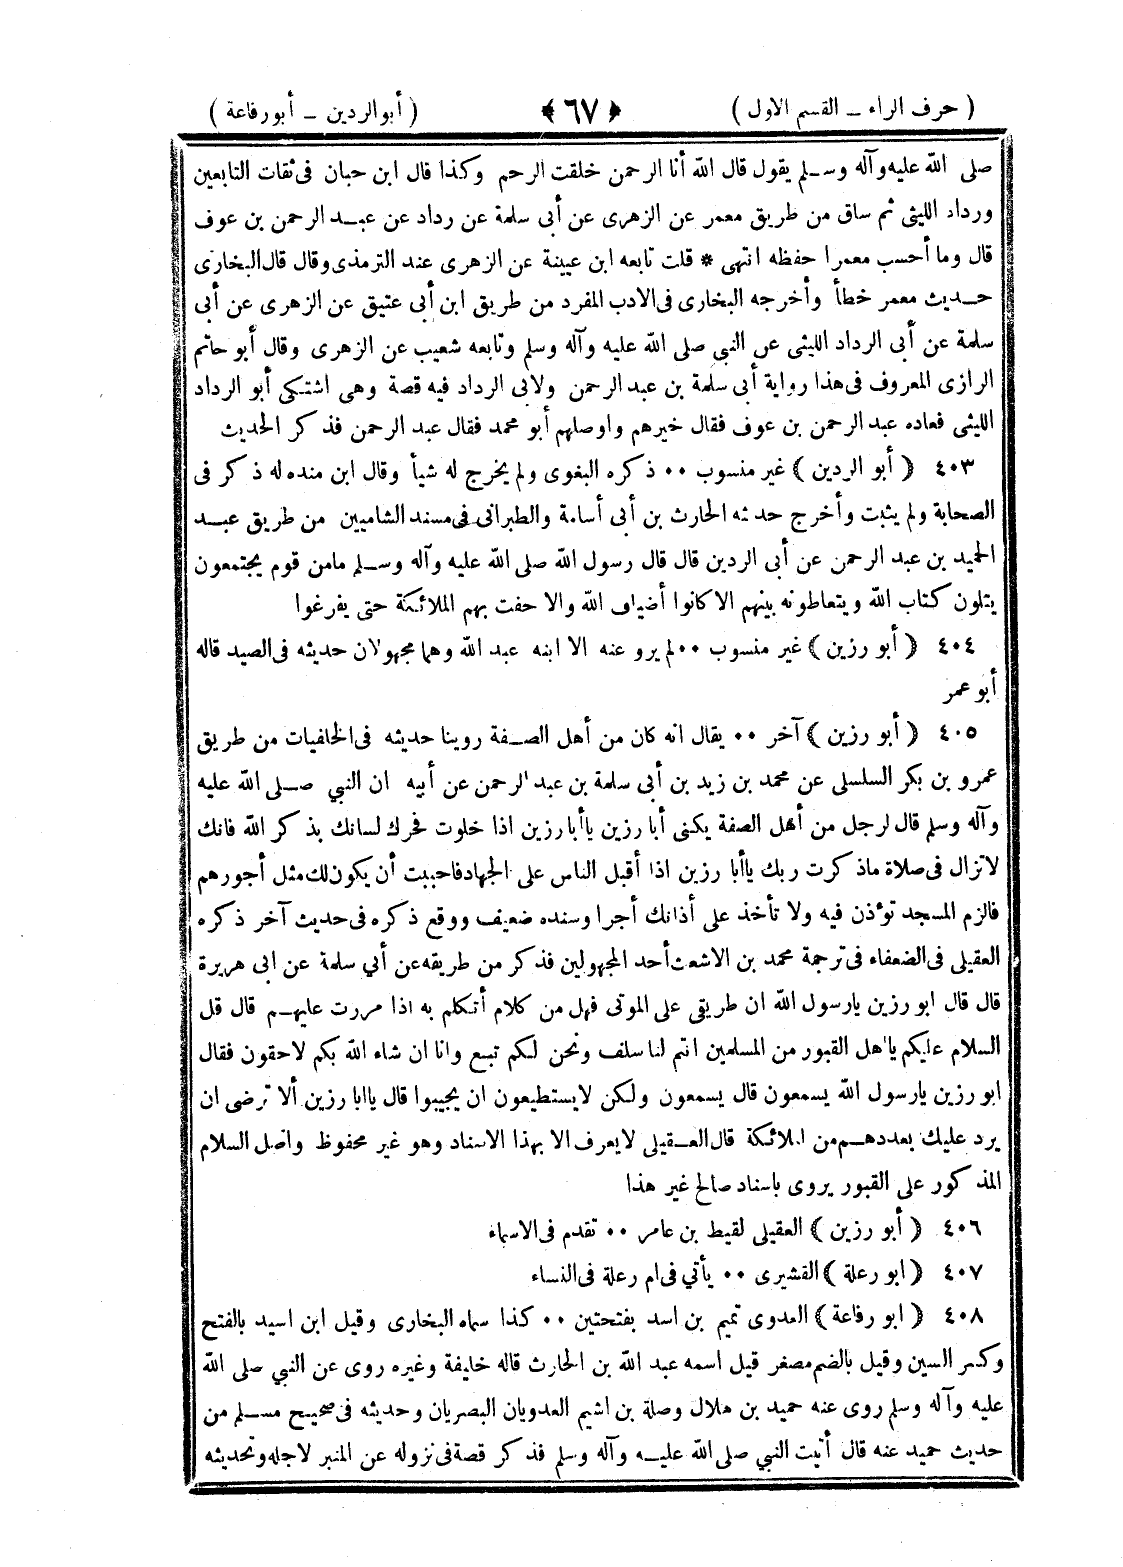 ( حرف الراء ــ القسم الاول )
﴿ ٦٧ ﴾
( أبوالردين ــ أبورفاعة )
صلى الله عليه وآله وسلم يقول قال الله أنا الرحمن خلقت الرحم وكذا قال ابن حبان فى ثقات التابعين
ورداد الليثى ثم ساق من طريق معمر عن الزهرى عن أبى سلمة عن رداد عن عبد الرحمن بن عوف
قال وما أحسب معمرا حفظه انتهى * قلت تابعه ابن عيينة عن الزهرى عند الترمذى وقال قال البخارى
حديث معمر خطأ وأخرجه البخارى فى الادب المفرد من طريق ابن أبى عتيق عن الزهرى عن أبى
سلمة عن أبى الرداد الليثى عن النبي صلى الله عليه وآله وسلم وتابعه شعيب عن الزهرى وقال أبو حاتم
الرازى المعروف فى هذا رواية أبى سلمة بن عبد الرحمن ولابى الرداد فيه قصة وهى اشتكى أبو الرداد
الليثى فعاده عبد الرحمن بن عوف فقال خيرهم واوصلهم أبو محمد فقال عبد الرحمن فذكر الحديث
٤٠٣ ﴿ أبو الردين ﴾ غير منسوب ٠٠ ذكره البغوى ولم يخرج له شيأ وقال ابن منده له ذكر فى
الصحابة ولم يثبت وأخرج حديثه الحارث بن أبى أسامة والطبرانى فى مسند الشاميين من طريق عبد
الحميد بن عبد الرحمن عن أبى الردين قال قال رسول الله صلى الله عليه وآله وسلم مامن قوم يجتمعون
يتلون كتاب الله ويتعاطونه بينهم الا كانوا أضياف الله والا حفت بهم الملائكة حتى يفرغوا
٤٠٤ ﴿ أبو رزين ﴾ غير منسوب ٠٠ لم يرو عنه الا ابنه عبد الله وهما مجهولان حديثه فى الصيد قاله
أبو عمر
٤٠٥ ﴿ أبو رزين ﴾ آخر ٠٠ يقال انه كان من أهل الصفة روينا حديثه فى الخلفيات من طريق
عمرو بن بكر السلسلى عن محمد بن زيد بن أبى سلمة بن عبد الرحمن عن أبيه ان النبي صلى الله عليه
وآله وسلم قال لرجل من أهل الصفة يكنى أبا رزين ياأبا رزين اذا خلوت فحرك لسانك بذكر الله فانك
لاتزال فى صلاة ماذكرت ربك ياأبا رزين اذا أقبل الناس على الجهاد فاحببت أن يكون لك مثل أجورهم
فالزم المسجد تؤذن فيه ولا تأخذ على أذانك أجرا وسنده ضعيف ووقع ذكره فى حديث آخر ذكره
العقيلى فى الضعفاء فى ترجمة محمد بن الاشعث أحد المجهولين فذكر من طريقه عن أبي سلمة عن ابى هريرة
قال قال ابو رزين يارسول الله ان طريقى على الموتى فهل من كلام أتكلم به اذا مررت عليهم قال قل
السلام عليكم ياهل القبور من المسلمين انتم لنا سلف ونحن لكم تبع وانا ان شاء الله بكم لاحقون فقال
ابو رزين يارسول الله يسمعون قال يسمعون ولكن لايستطيعون ان يجيبوا قال ياابا رزين ألا ترضى ان
يرد عليك بعددهم من الملائكة قال العقيلى لايعرف الا بهذا الاسناد وهو غير محفوظ واصل السلام
المذكور على القبور يروى باسناد صالح غير هذا
٤٠٦ ﴿ أبو رزين ﴾ العقيلى لقيط بن عامر ٠٠ تقدم فى الاسماء
٤٠٧ ﴿ ابو رعلة ﴾ القشيرى ٠٠ يأتي فى ام رعلة فى النساء
٤٠٨ ﴿ ابو رفاعة ﴾ العدوى تميم بن اسد بفتحتين ٠٠ كذا سماه البخارى وقيل ابن اسيد بالفتح
وكسر السين وقيل بالضم مصغر قيل اسمه عبد الله بن الحارث قاله خليفة وغيره روى عن النبي صلى الله
عليه وآله وسلم روى عنه حميد بن هلال وصلة بن اشيم العدويان البصريان وحديثه فى صحيح مسلم من
حديث حميد عنه قال أتيت النبي صلى الله عليه وآله وسلم فذكر قصة فى نزوله عن المنبر لاجله وتحديثه